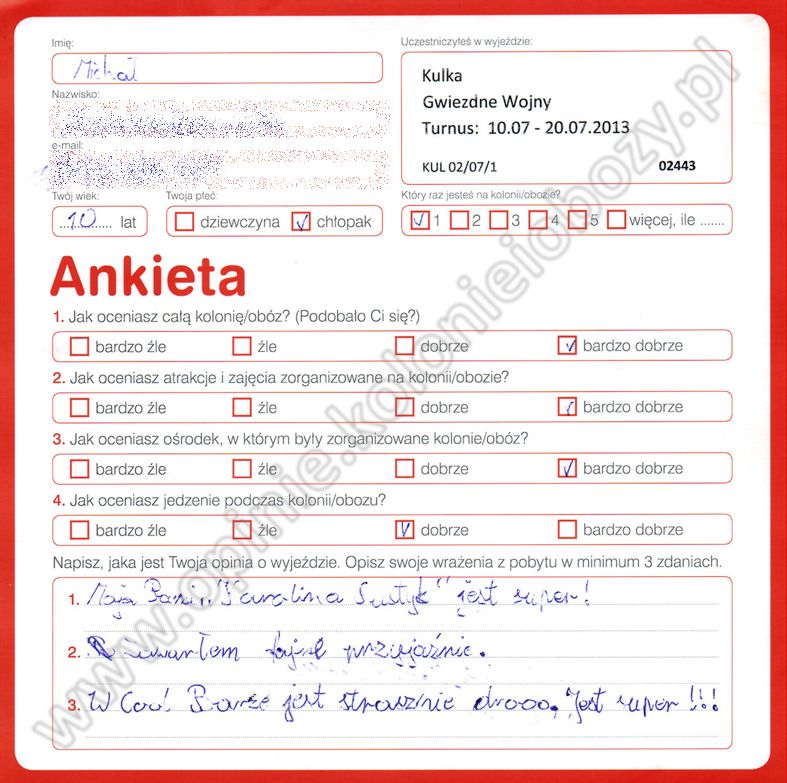 Imię:
Michał
Uczestniczyłeś w wyjeździe:
Kulka
Gwiezdne Wojny
Turnus: 10.07 - 20.07.2013
KUL 02/07/1 02443
Nazwisko:
e-mail:
Twój wiek:
...10...... lat
Twoja płeć:
dziewczyna chłopak
Który raz jesteś na kolonii/obozie?
1 2 3 4 5 więcej, ile .......
Ankieta
1. Jak oceniasz całą kolonię/obóz? (Podobało Ci się?)
bardzo źle źle dobrze bardzo dobrze
2. Jak oceniasz atrakcje i zajęcia zorganizowane na kolonii/obozie?
bardzo źle źle dobrze bardzo dobrze
3. Jak oceniasz ośrodek, w którym były zorganizowane kolonie/obóz?
bardzo źle źle dobrze bardzo dobrze
4. Jak oceniasz jedzenie podczas kolonii/obozu?
bardzo źle źle dobrze bardzo dobrze
Napisz, jaka jest Twoja opinia o wyjeździe. Opisz swoje wrażenia z pobytu w minimum 3 zdaniach.
1. Moja Pani "Karolina Sustyk" jest super!
2. zawarłem fajne przyjaźnie.
3. W Cool Barze jest strasznie drooo. Jest super!!!
www.opinie.kolonieiobozy.pl